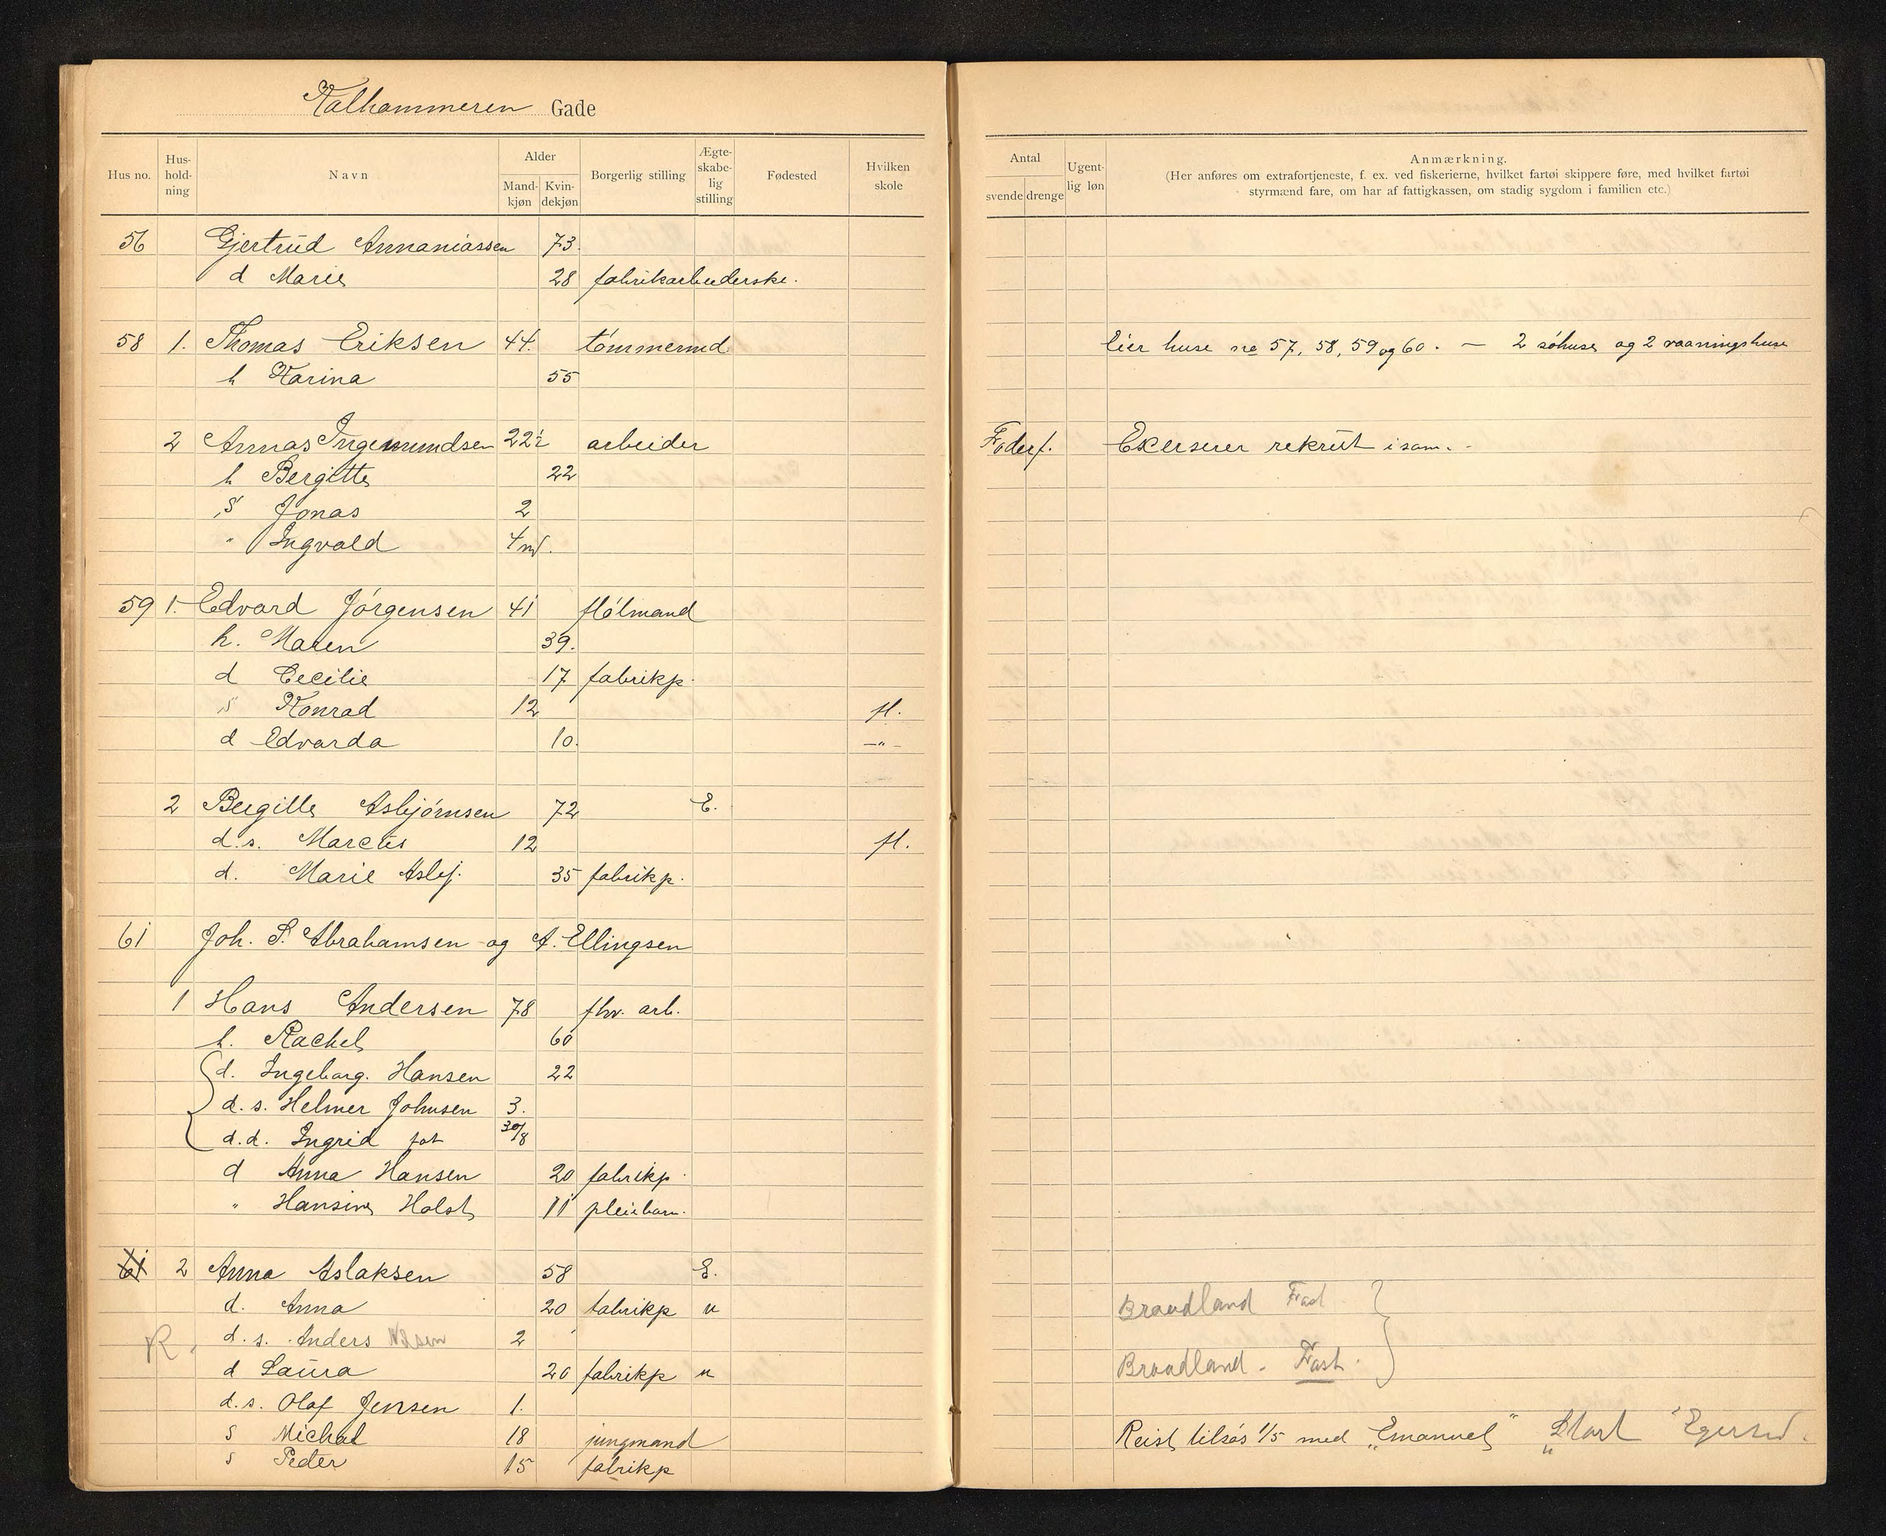 Kalhammeren Gade
Hus no. Hus-holdning Navn Alder Mandkjøn Kvindekjøn Borgerlig stilling Ægteskabelig stilling Fødested Hvilken skole
Antal svende drenge Ugentlig løn Anmærkning.
(Her anføres om extrafortjeneste, f. ex. ved fiskerierne, hvilket fartøi skippere føre, med hvilket fartøi
styrmænd fare, om har af fattigkassen, om stadig sygdom i familien etc.)
56 Gjertrud Annaniassen 73.
d Marie 28 fabrikarbeiderske.
58 1. Thomas Eriksen 44. tømmermd Eier huse no 57, 58, 59 og 60. — 2 søhuse og 2 vaaningshuse
h Karina 55
2 Annas Ingemundsen 22½ arbeider Foderf. Exerserer rekrut isom.
h Bergitte 22
s Jonas 2
" Ingvald 4 md.
59 1. Edvard Jørgensen 41 flølmand
h. Maren 39.
d Cecilie 17 fabrikp.
s Konrad 12 fl.
d Edvarda 10. —"—
2 Bergitte Asbjørnsen 72 E.
d.s. Marcus 12 fl.
d. Marie Asbj. 35 fabrikp.
61 Joh. S. Abrahamsen og A. Ellingsen
1 Hans Andersen 78 fhv. arb.
h. Rachel 60
d. Ingeborg Hansen 22
d.s. Helmer Johnsen 3.
d.d. Ingrid 30/8
d Anna Hansen 20 fabrikp.
" Hansine Holst 11 pleiebarn.
61 2 Anna Aslaksen 58 E.
d. Anna 20 fabrikp u Braadland Fast
R. d.s. Anders 2
d Laura 20 fabrikp u Braadland - Fast.
d.s. Olaf Jensen 1.
s Michal 18 jungmand Reist tilsøs 1/5 med "Emanuel" "Start" Egersd.
s Peder 15 fabrikp